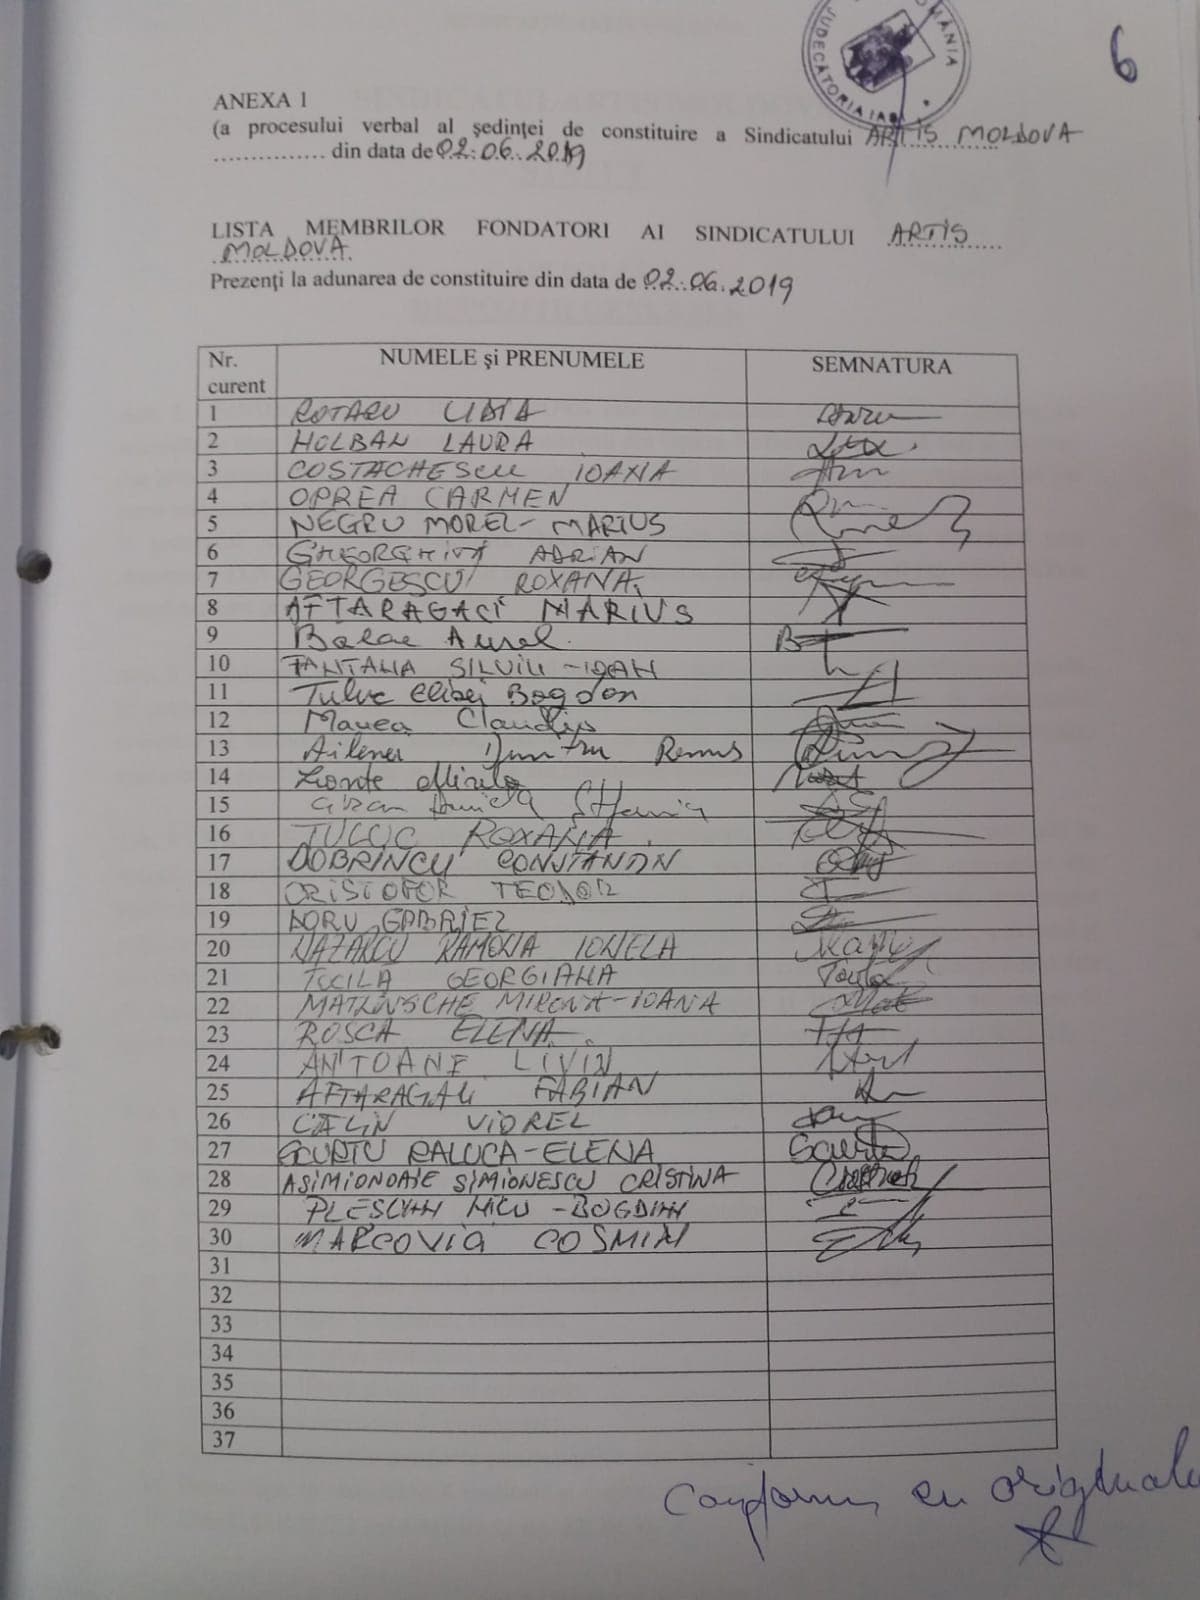 ROMÂNIA
JUDECĂTORIA IAȘI
6
ANEXA 1
(a procesului verbal al şedinţei de constituire a Sindicatului ARTIS MOLDOVA
............... din data de 02.06.2019
LISTA MEMBRILOR FONDATORI AI SINDICATULUI ARTIS
MOLDOVA
Prezenţi la adunarea de constituire din data de 02.06.2019
Nr. curent NUMELE şi PRENUMELE SEMNATURA
1 ROTARU LIDIA
2 HOLBAN LAURA
3 COSTACHESCU IOANA
4 OPREA CARMEN
5 NEGRU MOREL-MARIUS
6 GHEORGHIȚĂ ADRIAN
7 GEORGESCU ROXANA
8 AFTARAGACI MARIUS
9 Balae Aurel
10 FANTANA SILVIU-IOAN
11 Tuluc Bogdan
12 Manea Claudiu
13 Ailenei Dumitru Remus
14 Lionte Mirela
15 Daniela Stefania
16 TULUC ROXANA
17 DOBRINCU CONSTANTIN
18 CRISTOFOR TEODOR
19 DORU GABRIEL
20 NAZARCU RAMONA IONELA
21 GEORGIANA
22 MIRUNA-IOANA
23 ROSCA ELENA
24 ANTOANE LIVIU
25 AFTARAGALI FABIAN
26 CĂLIN VIOREL
27 SCURTU RALUCA-ELENA
28 ASIMIONOAIE SIMIONESCU CRISTINA
29 PLESCAN NICU-BOGDAN
30 MARCOVICI COSMIN
31
32
33
34
35
36
37
Conform cu originalul